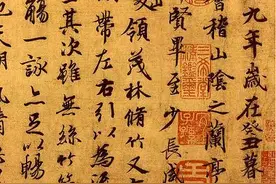 九年歲在癸丑暮
會稽山陰之蘭亭
賢畢至少長咸
領茂林脩竹又
帶左右引以為流
其次雖無絲竹
觴一詠亦足以暢
天朗氣清